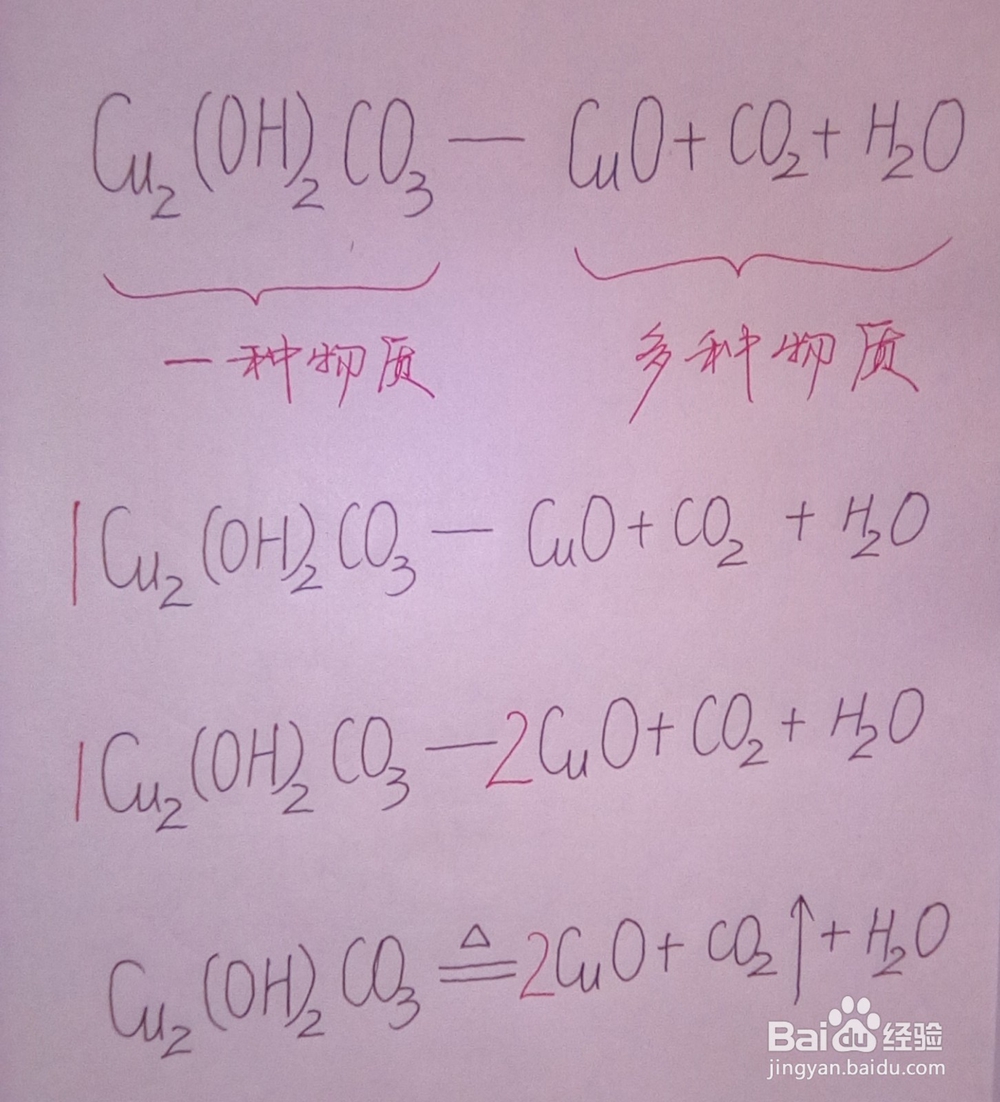 Cu₂(OH)₂CO₃ — CuO + CO₂ + H₂O
一种物质 多种物质
1Cu₂(OH)₂CO₃ — CuO + CO₂ + H₂O
1Cu₂(OH)₂CO₃ — 2CuO + CO₂ + H₂O
Cu₂(OH)₂CO₃ ≜ 2CuO + CO₂↑ + H₂O
Baidu经验
jingyan.baidu.com